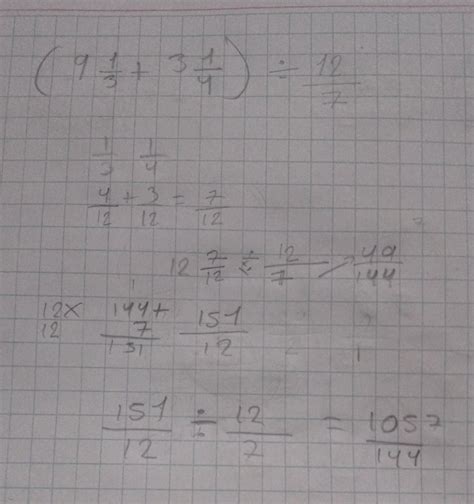 (9 1/3 + 3 1/4) ÷ 12/7
1/3 1/4
4/12 + 3/12 = 7/12
12 7/12 ÷ 12/7 49/144
12x 144+
12 7 151/12
151
151/12 ÷ 12/7 = 1057/144